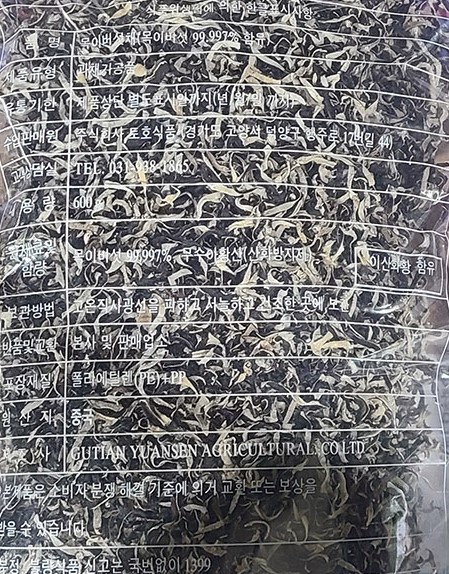 식품위생법에 의한 한글표시사항
품 명 목이버섯채(목이버섯 99.997% 함유)
제품유형 과채가공품
유통기한 제품상단 별도표시일까지(년/월/일 까지)
수입판매원 주식회사 토호식품(경기도 고양시 덕양구 행주로 17번길 44)
고객상담실 TEL. 031-938-1865
내 용 량 600g
원재료및 함량 목이버섯 99.997%, 무수아황산(산화방지제) 이산화황 함유
보관방법 고온직사광선을 피하고 서늘하고 건조한 곳에 보관
반품및교환 본사 및 판매업소
포장재질 폴리에틸렌(PE)+PP
원 산 지 중국
제 조 사 GUTIAN YUANSEN AGRICULTURAL. CO.LTD
본제품은 소비자 분쟁 해결 기준에 의거 교환 또는 보상을
받을 수 있습니다.
부정·불량식품 신고는 국번없이 1399